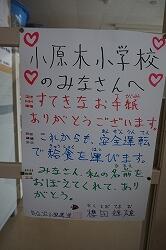 小原木小学校
のみなさんへ
すてきなお手紙
ありがとうございます
これからも、安全運転
で給食を運びます。
みなさん、私の名前を
おぼえてくれて、あり
がとう。